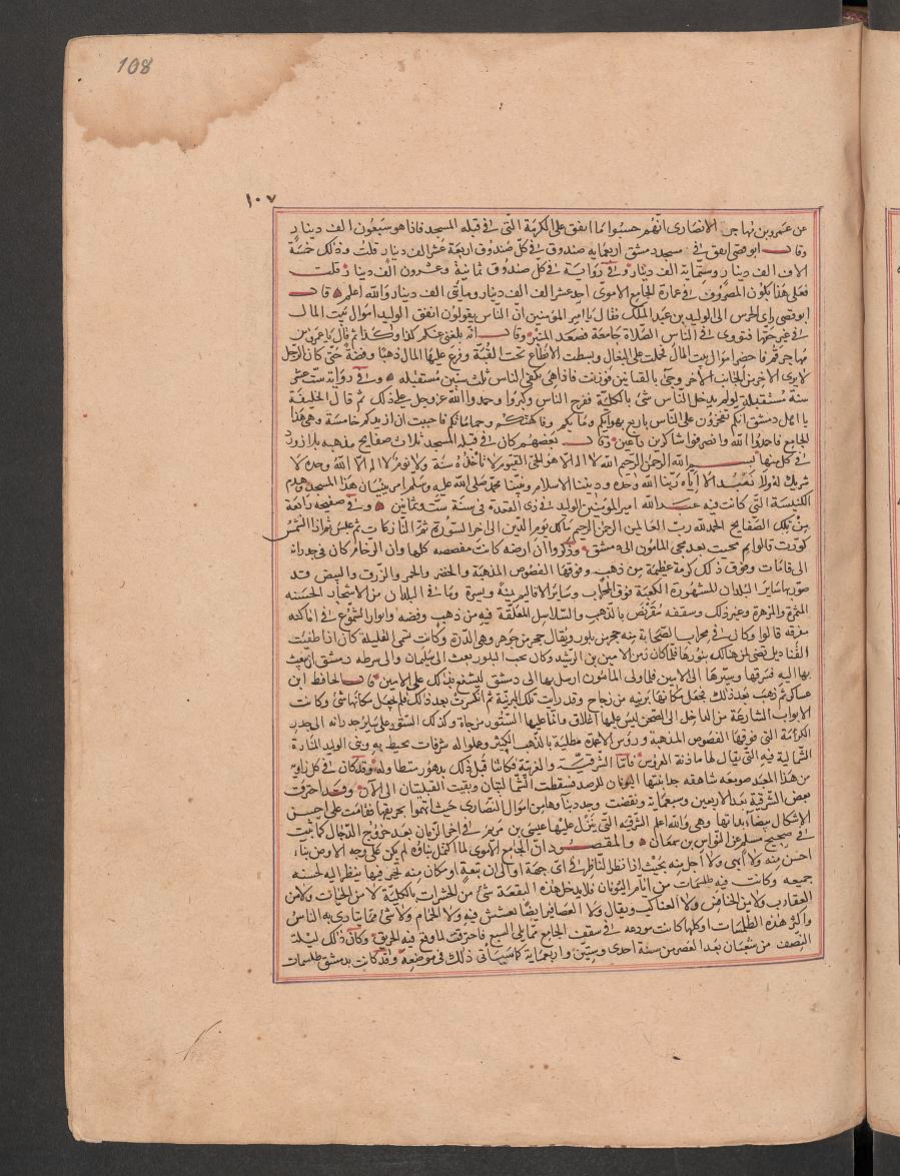 108
١٠٧
عن عمرو بن مهاجر الانصارى انهم حسبوا ما انفق على الكرمة التى فى قبلة المسجد فاذا هو سبعون الف دينار
وقال ابو قصى انفق فى مسجد دمشق اربعماية صندوق فى كل صندوق اربعة عشر الف دينار قلت وذلك خمسة
الاف الف دينار وستماية الف دينار وفى رواية فى كل صندوق ثمانية وعشرون الف دينار قلت
فعلى هذا يكون المصروف فى عمارة الجامع الاموى احد عشر الف الف دينار ومائتى الف دينار والله اعلم قال
ابو قصى راى الحرس الى الوليد بن عبد الملك فقال يا امير المؤمنين ان الناس يقولون انفق الوليد اموال بيت المال
فى غير حقها فنودى فى الناس الصلاة جامعة فصعد المنبر وقال انه بلغنى عنكم كذا وكذا ثم قال يا عمرو بن
مهاجر قم فاحضر اموال بيت المال فحملت على البغال وبسطت الانطاع تحت القبة وفرغ عليها المال ذهبا وفضة حتى كان الرجل
لا يرى الاخر من الجانب الاخر وجئ بالقبانين فوزنت فاذا هى تكفى الناس ثلث سنين مستقبله وفى رواية ست عشر
سنة مستقبلة لو لم يدخل الناس شئ بالكلية ففرح الناس وكبروا وحمدوا الله عز وجل على ذلك ثم قال الخليفة
يا اهل دمشق انكم تفخرون على الناس باربع بهوائكم ومائكم وفاكهتكم وحماماتكم فاحببت ان ازيدكم خامسة وهى هذا
الجامع فاحمدوا الله وانصرفوا شاكرين داعين وقال بعضهم كان فى قبلة المسجد ثلاث صفايح مذهبه بلازورد
فى كل منها بسم الله الرحمن الرحيم الله لا اله الا هو الحى القيوم لا تأخذه سنة ولا نوم لا اله الا الله وحده لا
شريك له ولا نعبد الا اياه ربنا الله وحده وديننا الاسلام ونبينا محمد صلى الله عليه وسلم امر ببنيان هذا المسجد وهدم
الكنيسة التى كانت فيه عبد الله امير المؤمنين الوليد فى ذى القعدة فى سنة ست وثمانين وفى صفيحة رابعة
من تلك الصفايح الحمد لله رب العالمين الرحمن الرحيم مالك يوم الدين الى اخر السورة ثم النازعات ثم عبس ثم اذا الشمس
كورت قالوا ثم محيت بعد مجى المامون الى دمشق وذكروا ان ارضه كانت مفصصه كلها وان الرخام كان فى جدرانه
الى قامات وفوق ذلك كرمة عظيمة من ذهب وفوقها الفصوص المذهبة والخضر والحمر والزرق والبيض قد
صور بها سائر البلدان المشهورة الكعبة فوق المحراب وسائر الاقاليم يمنة ويسرة وما فى البلدان من الاشجار الحسنه
المثمرة والمزهرة وغير ذلك وسقفه مقرنص بالذهب والسلاسل المعلقة فيه من ذهب وفضه وانوار الشموع فى اماكنه
مفرقه قالوا وكان فى محراب الصحابة منه حجر من بلور ويقال حجر من جوهر وهى الدرة وكانت تسمى القليلة كان اذا طفئت
القناديل تضى لمن هنالك بنورها فلما كان زمن الامين بن الرشيد وكان يحب البلور بعث الى سليمان والى شرطه دمشق ان يبعث
بها اليه فسرقها وسيرها الى الامين فلما ولى المامون ارسل بها الى دمشق ليشنع بذلك على الامين قال الحافظ ابن
عساكر ثم ذهبت بعد ذلك فجعل مكانها برنيه من زجاج وقد رايت تلك البرنية ثم انكسرت بعد ذلك فلم يجعل مكانها شئ وكانت
الابواب الشارعة من الداخل الى الصحن ليس عليها اغلاق وانما عليها الستور مرخاة وكذلك الستور على ساير جدرانه الى حد
الكرمة التى فوقها الفصوص المذهبة ورؤس الاعمدة مطلية بالذهب الكثير وعملوا له شرفات تحيط به وبنى الوليد المنارة
الشمالية فيه التى يقال لها ماذنة العروس فاما الشرقية والغربية فكانتا قبل ذلك بدهور متطاوله وقد كان فى كل زاوية
من هذا المعبد صومعه شاهقه جدا بنتها اليونان للرصد فسقطت الشماليتان وبقيت القبليتان الى الان وقد احرقت
بعض الشرقية بعد الاربعين وسبعماية ونقضت وجدد بناؤها من اموال النصارى حيث اتهموا بحريقها فقامت على احسن
الاشكال بيضاء بذاتها وهى والله اعلم الشرقيه التى ينزل عليها عيسى بن مريم فى اخر الزمان بعد خروج الدجال كما ثبت
فى صحيح مسلم عن النواس بن سمعان والمقصود ان الجامع الاموى لما اكتمل بناؤه لم يكن على وجه الارض بناء
احسن منه ولا ابهى ولا اجل منه بحيث اذا نظر الناظر فى اى جهة او الى اى بقعة او مكان منه تحير فيها ينظر اليه لحسنه
جميعه وكانت فيه طلسمات من ايام اليونان فلا يدخل هذه البقعة شئ من الحشرات بالكلية لا من الحيات ولا من
العقارب ولا من الخنافس ولا العناكب ويقال ولا العصافير ايضا تعشش فيه ولا الحمام ولا شئ مما يتاذى به الناس
واكثر هذه الطلسمات او كلها كانت مودعه فى سقف الجامع مما يلى السبع فاحترقت لما وقع فيه الحريق وكان ذلك ليلة
النصف من شعبان بعد العصر من سنة احدى وستين واربعماية كما سياتى ذلك فى موضعه وقد كانت بدمشق طلسمات